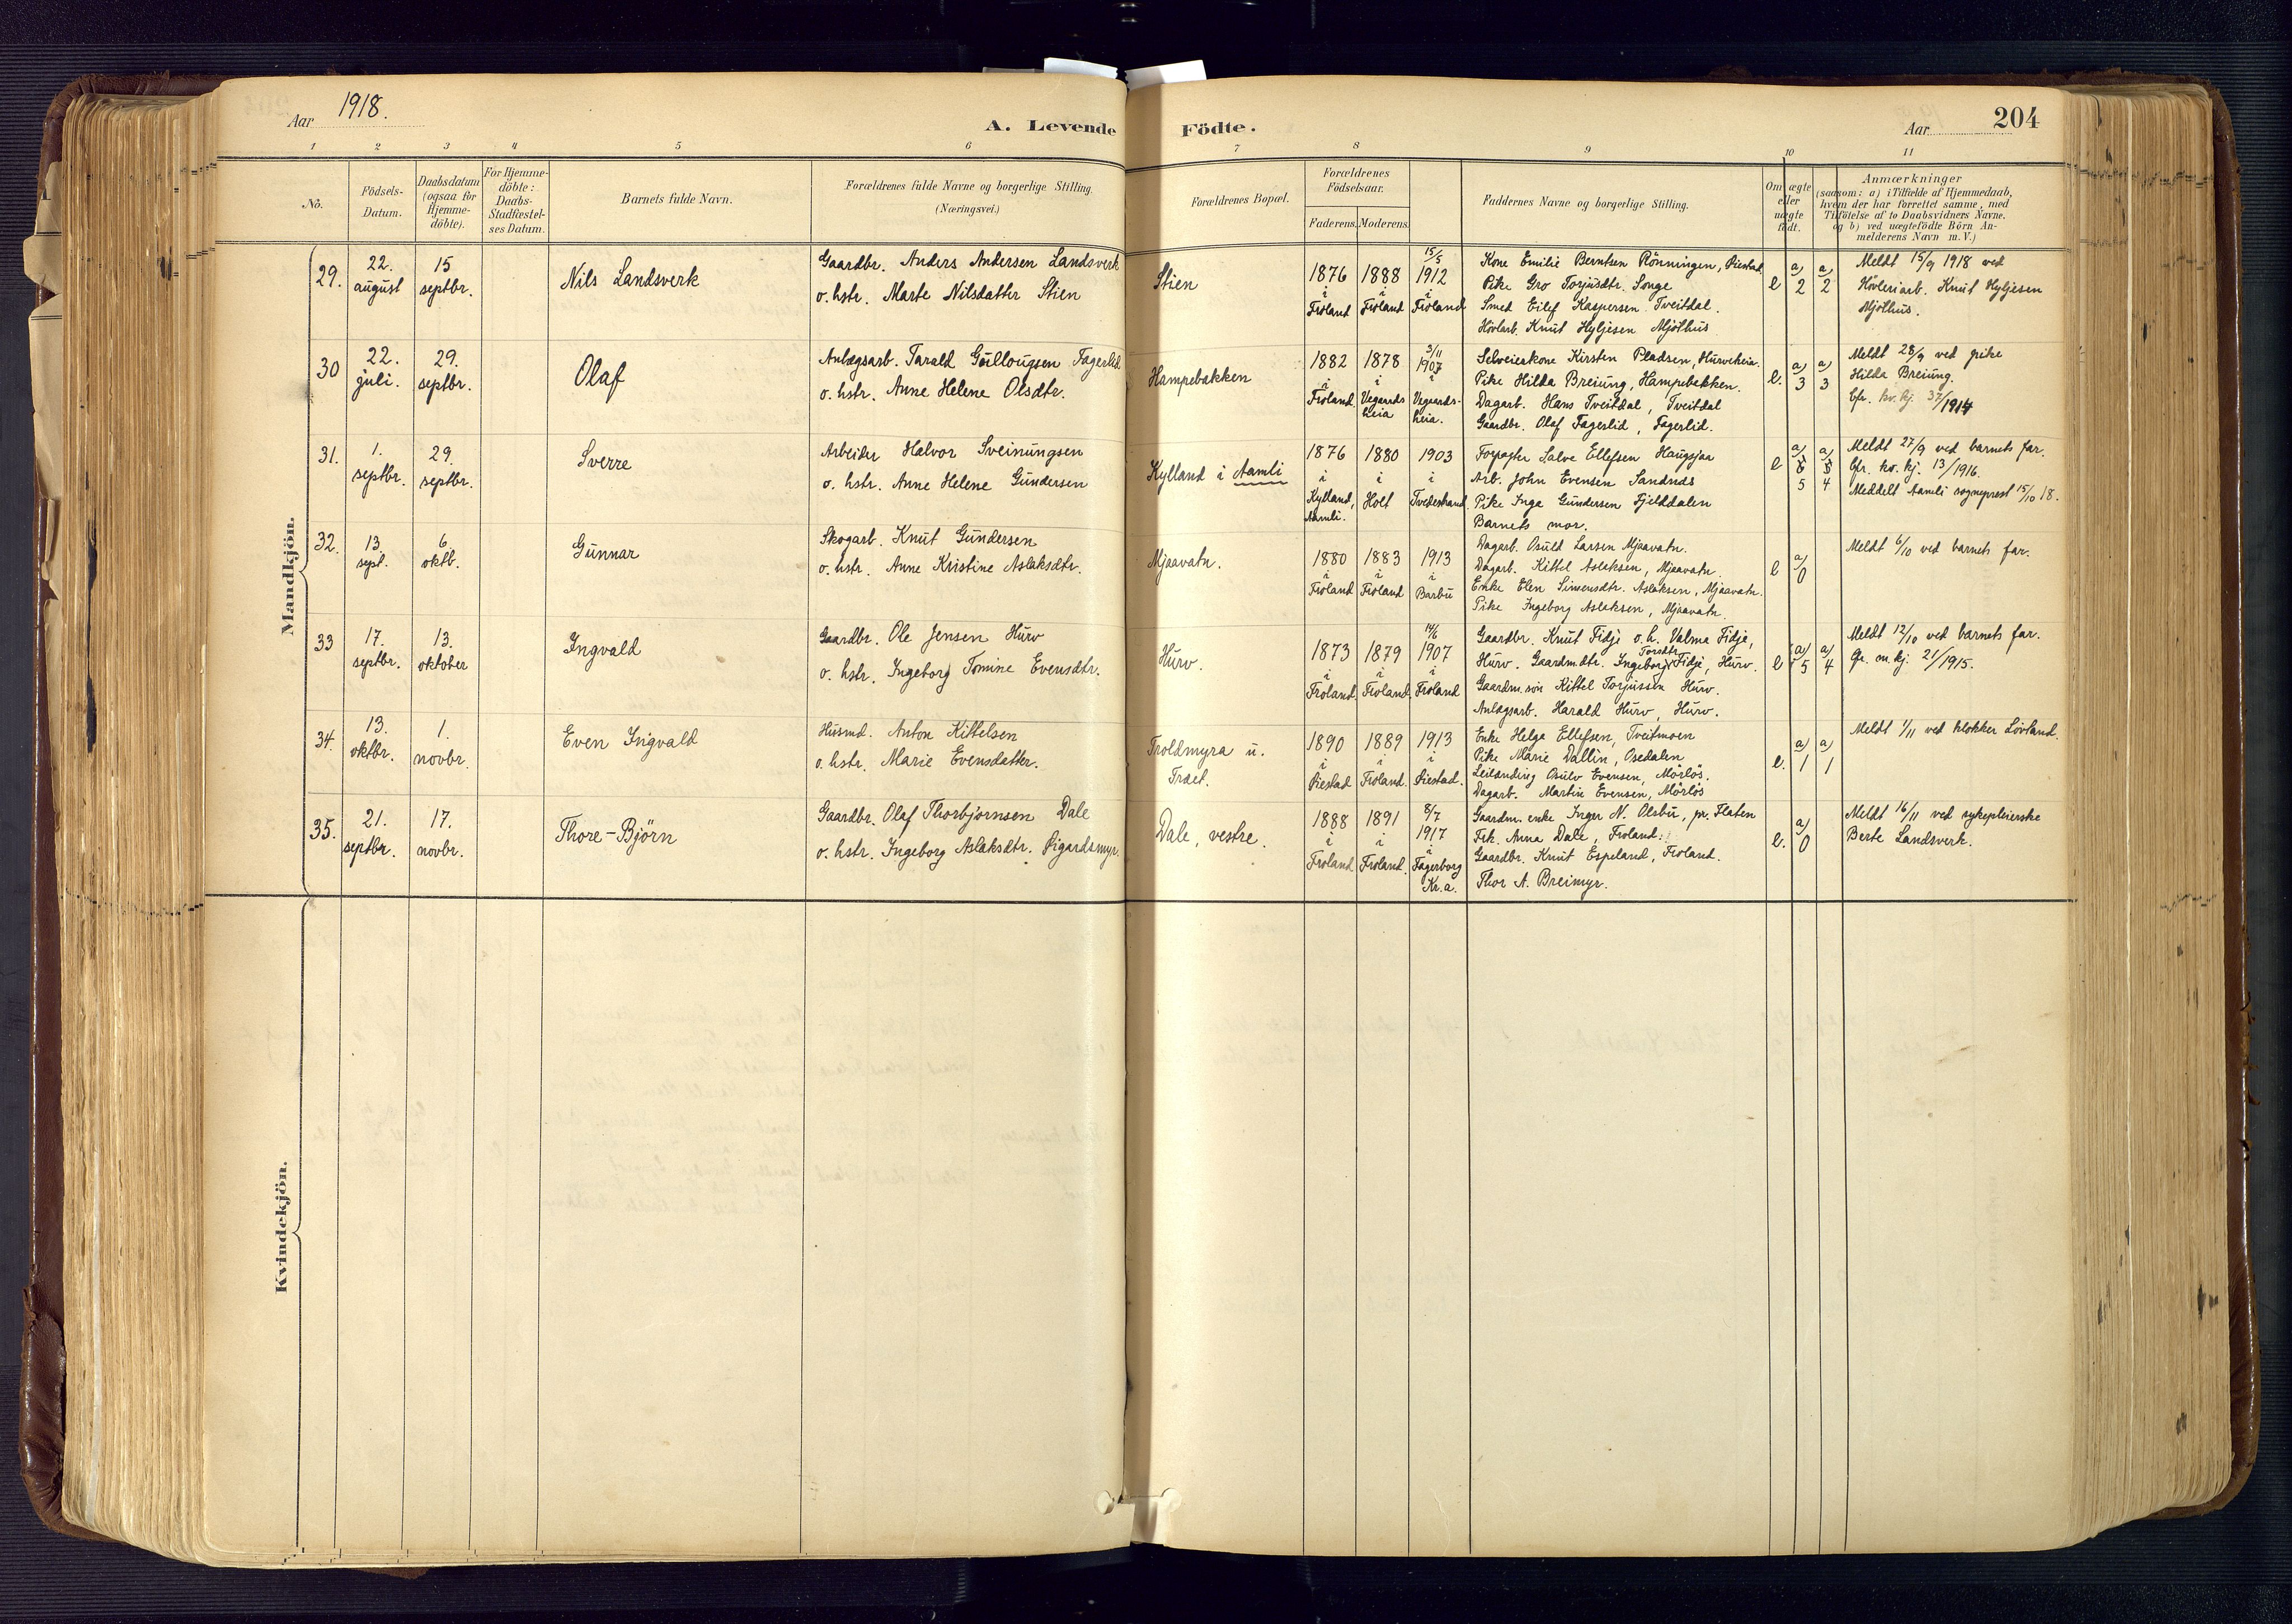 Aar 1918.
A. Levende Födte.
Aar 204
1 2 3 4 5 6 7 8 9 10 11
No.
Födsels-
Datum.
Daabsdatum
(ogsaa for
Hjemme-
döbte).
For Hjemme-
döbte:
Daabs-
Stadfæstel-
ses Datum.
Barnets fulde Navn.
Forældrenes fulde Navne og borgerlige Stilling.
(Næringsvei.)
Forældrenes Bopæl.
Forældrenes
Födselsaar.
Faderens. Moderens.
Faddernes Navne og borgerlige Stilling.
Om ægte
eller
uægte
födt.
Anmærkninger
(saasom: a) i Tilfælde af Hjemmedaab,
hvem der har forrettet samme, med
Tilföielse af to Daabsvidners Navne,
og b) ved uægtefödte Börn An-
melderens Navn m. V.)
Mandkjön.
29.
22.
august
15
septbr.
Nils Landsverk
Gaardbr. Anders Andersen Landsverk
o. hstr. Marte Nilsdatter Stien
Stien
1876
i
Froland
1888
i
Froland
15/5
1912
i
Froland
Kone Emilie Berntsen Rönningen, Øiestad
Pike Gro Torjusdtr. Songe
Smed Eilef Kaspersen Tveitdal.
Hövlarb. Knut Hyljesen Mjölhus
e
a)
2
a)
2
Meldt 15/9 1918 ved
Hövleriarb. Knut Hyljesen
Mjölhus.
30
22.
juli.
29.
septbr.
Olaf
Anlægsarb. Tarald Gullougsen Fagerlid
o. hstr. Anne Helene Olsdtr.
Hampebakken
1882
i
Froland
1878
i
Vegaards
heia
3/11
1907
i
Vegaards-
heia.
Selveierkone Kirsten Pladsen, Hurveheia.
Pike Hilda Breiung, Hampebakken.
Dagarb. Hans Tveitdal, Tveitdal
Gaardbr. Olaf Fagerlid, Fagerlid.
e.
a)
3
a)
3
Meldt 28/9 ved pike
Hilda Breiung.
Cfr. kv. kj. 37/1914
31.
1.
septbr.
29.
septbr.
Sverre
Arbeider Halvor Sveinungsen
o. hstr. Anne Helene Gundersen
Kylland i Aamli
1876
i
Kylland,
Aamli.
1880
i
Holt
1903
i
Tvedestrand
Forpagter Salve Ellefsen Haugsjaa
Arb. John Evensen Sandnes
Pike Inga Gundersen Fjelddalen
Barnets mor.
e
a)
5
a)
4
Meldt 27/9 ved barnets far.
Cfr. kv. kj. 13/1916.
Meddelt Aamli sogneprest 15/10 18.
32.
13.
sept.
6.
oktb.
Gunnar
Skogarb. Knut Gundersen
o. hstr. Anne Kristine Aslaksdtr.
Mjaavatn.
1880
i
Froland
1883
i
Froland
1913
i
Barbu
Dagarb. Osuld Larsen Mjaavatn.
Dagarb. Kittel Aslaksen, Mjaavatn.
Enke Elen Simensdtr. Aslaksen, Mjaavatn.
Pike Ingeborg Aslaksen, Mjaavatn.
e
a)
0
Meldt 6/10 ved barnets far.
33
17.
septbr.
13.
oktober
Ingvald
Gaardbr. Ole Jensen Hurv
o. hstr. Ingeborg Tomine Evensdtr.
Hurv.
1873
i
Froland
1879
i
Froland
14/6
1907
i
Froland
Gaardbr. Knut Fidje o. h. Valma Fidje,
Hurv. Gaardm.dtr. Ingeborg Torsdtr. Fidje, Hurv.
Gaardm.sön Kittel Torjussen Hurv.
Anlægsarb. Harald Hurv, Hurv.
e
a)
5
a)
4
Meldt 12/10 ved barnets far.
Cfr. m. kj. 21/1915.
34.
13.
oktbr.
1.
novbr.
Even Ingvald
Husmd. Anton Kittelsen
o. hstr. Marie Evensdatter.
Troldmyra u.
Træt.
1890
i
Øiestad
1889
i
Froland.
1913
i
Øiestad.
Enke Helga Ellefsen, Tveitmoen
Pike Marie Dallin, Osedalen
Leilænding Osulv Evensen, Mörlös.
Dagarb. Martin Evensen, Mörlös
e.
a)
1
a)
1
Meldt 1/11 ved klokker Lövland.
35.
21.
septbr.
17.
novbr.
Thore-Björn
Gaardbr. Olaf Thorbjornsen Dale
o. hstr. Ingeborg Aslaksdtr. Sigardsmyr.
Dale, vestre.
1888
i
Froland
1891
i
Froland.
8/7
1917
i
Fagerborg
Kr.a.
Gaardm. enke Inger N. Olsbu, pr. Flaten
Frk. Anna Dale, Froland.
Gaardbr. Knut Espeland, Froland.
Thor A. Breimyr.
e.
a)
0
Meldt 16/11 ved sykepleierske
Berte Landsverk.
Kvindekjön.